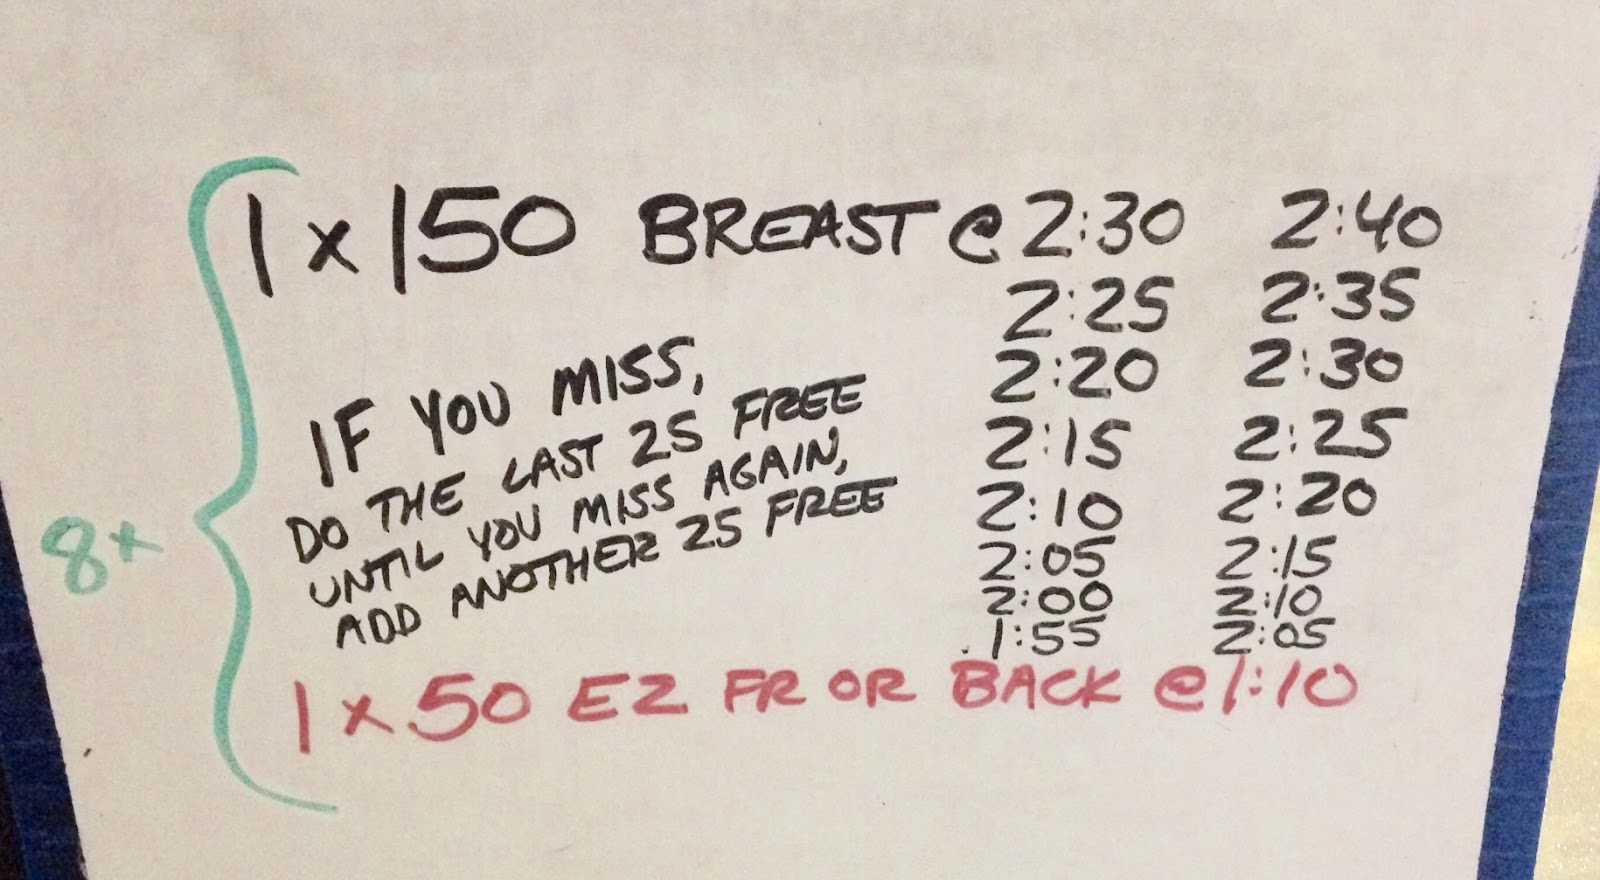 1 x 150 BREAST @ 2:30 2:40
2:25 2:35
2:20 2:30
2:15 2:25
2:10 2:20
2:05 2:15
2:00 2:10
1:55 2:05
IF YOU MISS,
DO THE LAST 25 FREE
UNTIL YOU MISS AGAIN,
ADD ANOTHER 25 FREE
8x
1 x 50 EZ FR OR BACK @ 1:10